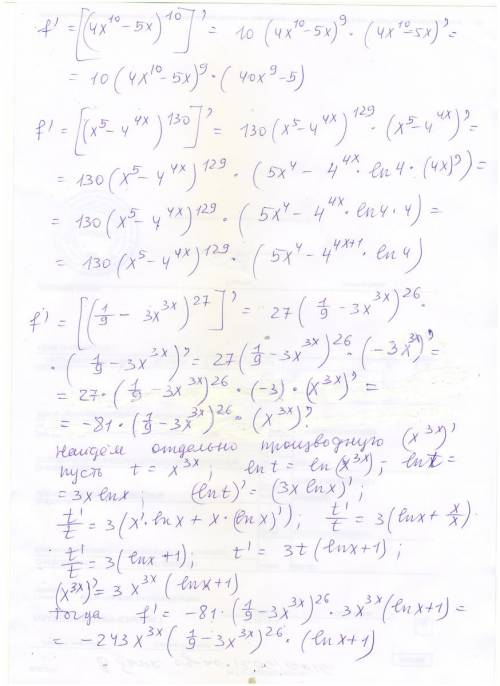 f' = [(4x¹⁰ − 5x)¹⁰]' = 10 (4x¹⁰ − 5x)⁹ · (4x¹⁰ − 5x)' =
= 10 (4x¹⁰ − 5x)⁹ · (40x⁹ − 5)
f' = [(x⁵ − 4⁴ˣ)¹³⁰]' = 130 (x⁵ − 4⁴ˣ)¹²⁹ · (x⁵ − 4⁴ˣ)' =
= 130 (x⁵ − 4⁴ˣ)¹²⁹ · (5x⁴ − 4⁴ˣ · ln4 · (4x)') =
= 130 (x⁵ − 4⁴ˣ)¹²⁹ · (5x⁴ − 4⁴ˣ · ln4 · 4) =
= 130 (x⁵ − 4⁴ˣ)¹²⁹ · (5x⁴ − 4⁴ˣ⁺¹ · ln4)
f' = [(1/9 − 3x³ˣ)²⁷]' = 27 (1/9 − 3x³ˣ)²⁶ ·
· (1/9 − 3x³ˣ)' = 27 (1/9 − 3x³ˣ)²⁶ · (−3x³ˣ)' =
= 27 · (1/9 − 3x³ˣ)²⁶ · (−3) · (x³ˣ)' =
= −81 · (1/9 − 3x³ˣ)²⁶ · (x³ˣ)'
Найдём отдельно производную (x³ˣ)'
пусть t = x³ˣ; ln t = ln(x³ˣ); ln t =
= 3x lnx; (ln t)' = (3x lnx)';
t'/t = 3(x' · lnx + x · (lnx)'); t'/t = 3(lnx + x/x)
t'/t = 3(lnx + 1); t' = 3t (lnx + 1);
(x³ˣ)' = 3x³ˣ (lnx + 1)
Тогда f' = −81 · (1/9 − 3x³ˣ)²⁶ · 3x³ˣ (lnx + 1) =
= −243x³ˣ (1/9 − 3x³ˣ)²⁶ · (lnx + 1)